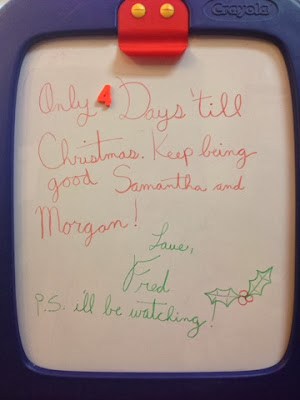 Crayola
Only 4 Days 'till
Christmas. Keep being
good Samantha and
Morgan!
Love,
Fred
P.S. i'll be watching!